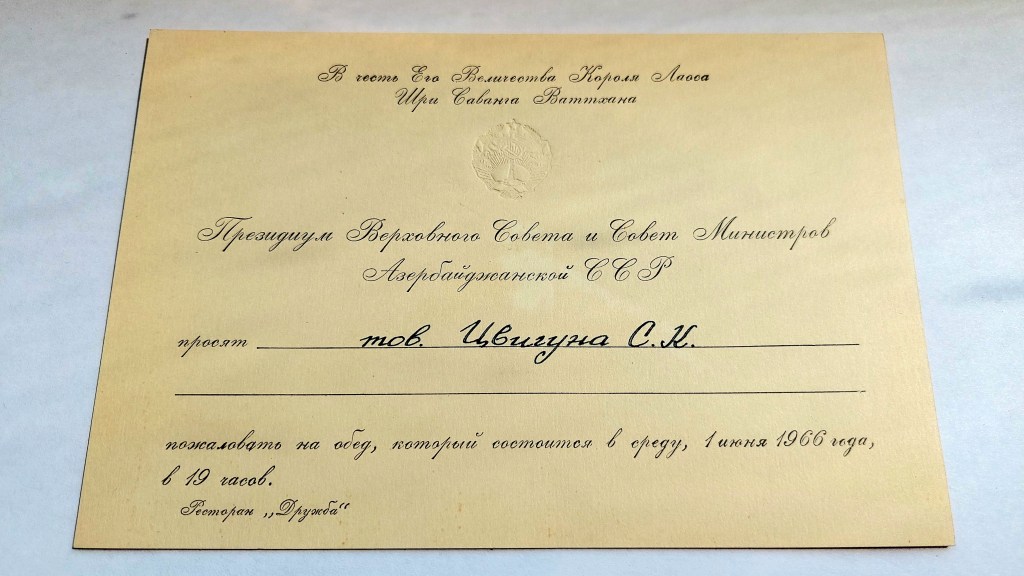 В честь Его Величества Короля Лаоса
Шри Саванга Ваттхана
Президиум Верховного Совета и Совет Министров
Азербайджанской ССР
просят тов. Цвигуна С.К.
пожаловать на обед, который состоится в среду, 1 июня 1966 года,
в 19 часов.
Ресторан „Дружба“